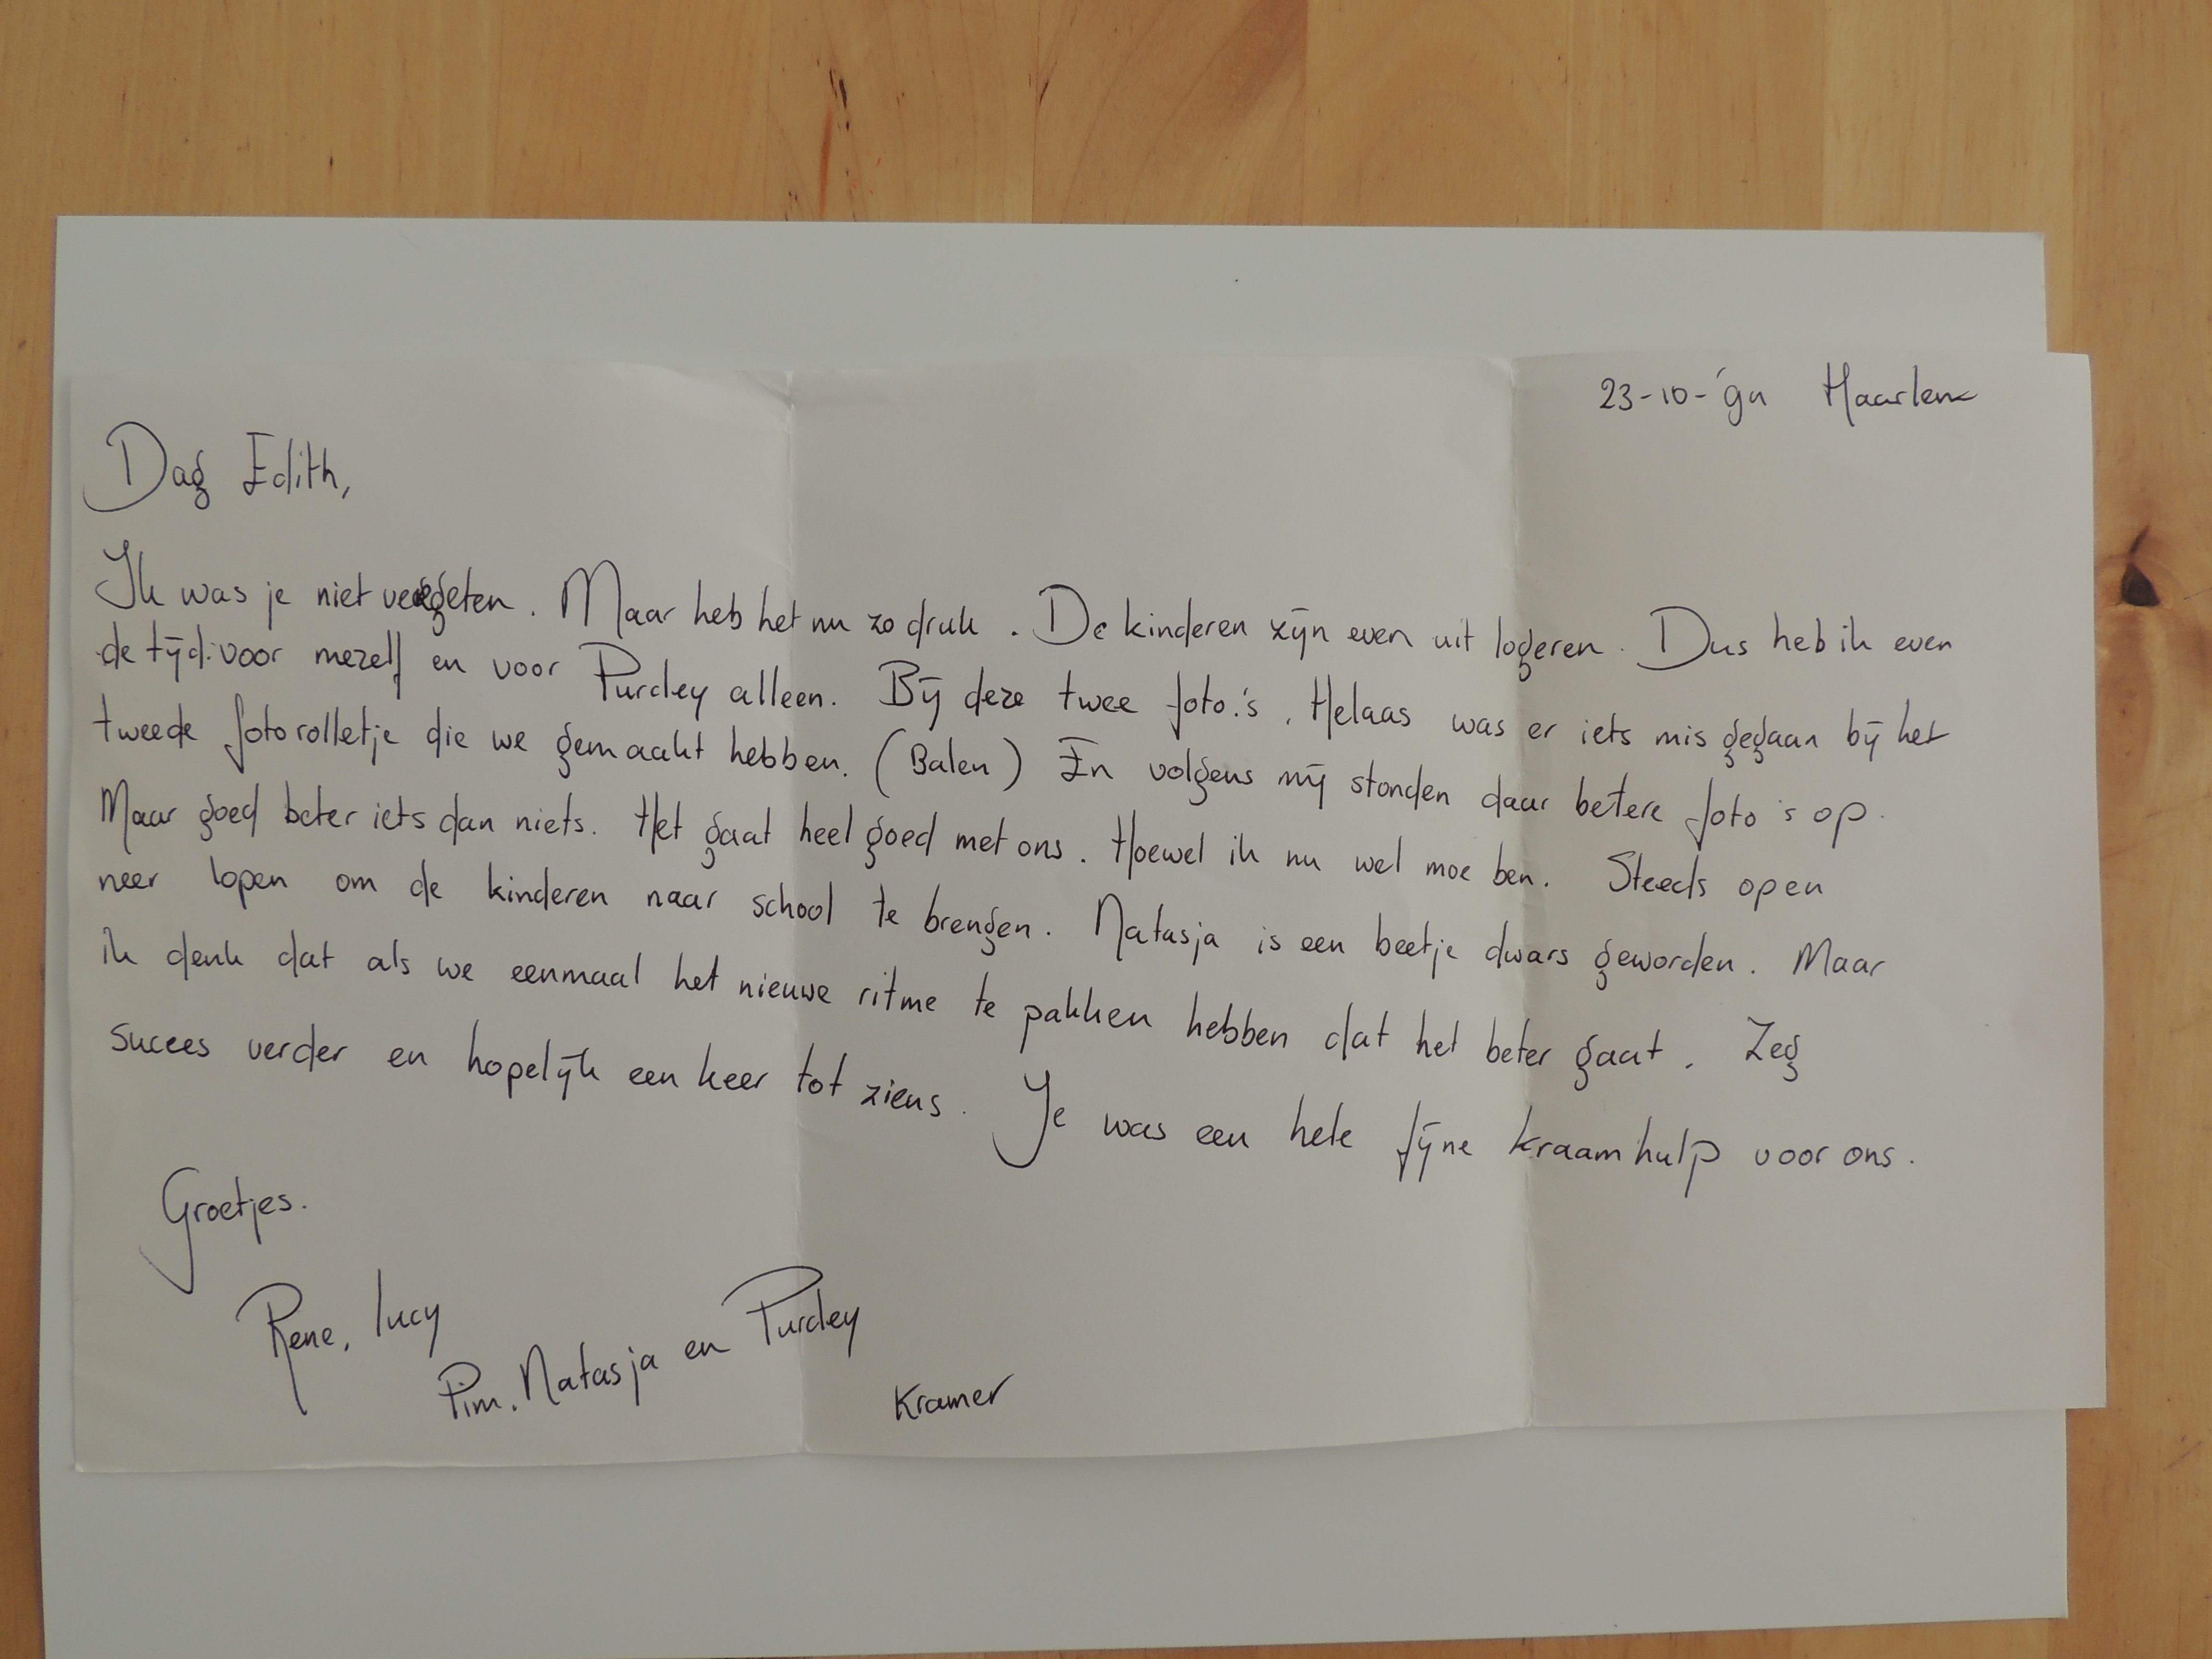 23-10-'94 Haarlem
Dag Edith,
Ik was je niet vergeten. Maar heb het nu zo druk. De kinderen zijn even uit logeren. Dus heb ik even
de tijd voor mezelf en voor Purdey alleen. Bij deze twee foto's. Helaas was er iets mis gegaan bij het
tweede fotorolletje die we gemaakt hebben. (Balen) En volgens mij stonden daar betere foto's op.
Maar goed beter iets dan niets. Het gaat heel goed met ons. Hoewel ik nu wel moe ben. Steeds open
neer lopen om de kinderen naar school te brengen. Natasja is een beetje dwars geworden. Maar
ik denk dat als we eenmaal het nieuwe ritme te pakken hebben dat het beter gaat. Zeg
sucees verder en hopelijk een keer tot ziens. Je was een hele fijne kraamhulp voor ons.
Groetjes.
Rene, Lucy
Pim, Natasja en Purdey
Kramer